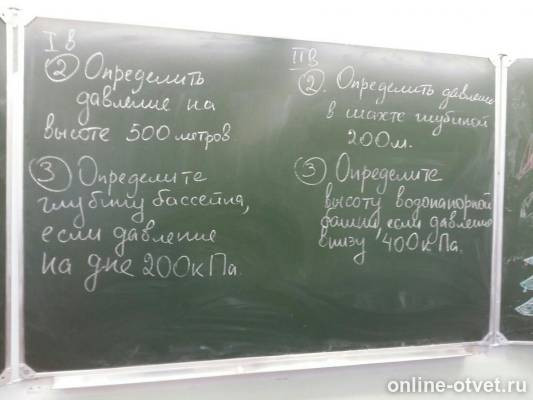 I в
② Определить
давление на
высоте 500 метров
③ Определите
глубину бассейна,
если давление
на дне 200 кПа.
II в
②. Определить давление
в шахте глубиной
200м.
③ Определите
высоту водонапорной
башни, если давление
внизу 400 кПа.
online-otvet.ru